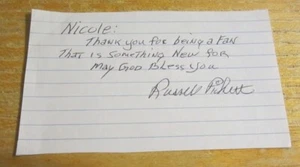 Nicole:
Thank you for being a fan
That is something new for
May God Bless you
Russell